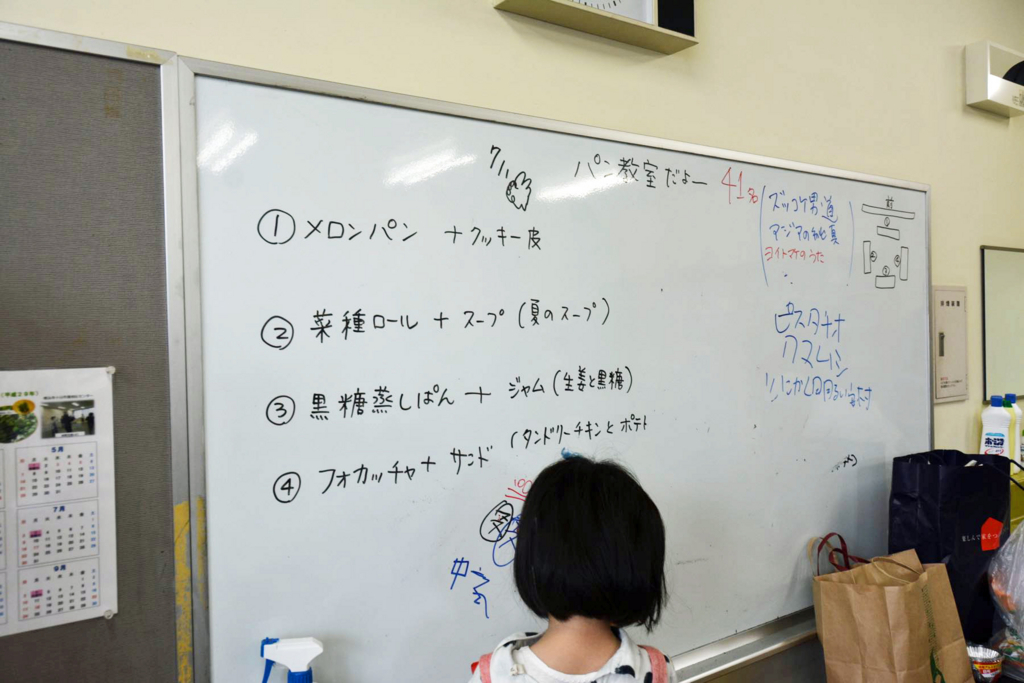 7/1
パン教室だよー
41%
① メロンパン + クッキー皮
② 菜種ロール + スープ (夏のスープ)
③ 黒糖蒸しぱん + ジャム (生姜と黒糖)
④ フォカッチャ + サンド (タンドリーチキンとポテト
ズッコケ男道
アジアの純真
ヨイトマケのうた
前
ピスタチオ
クマムシ
5月
7月
9月